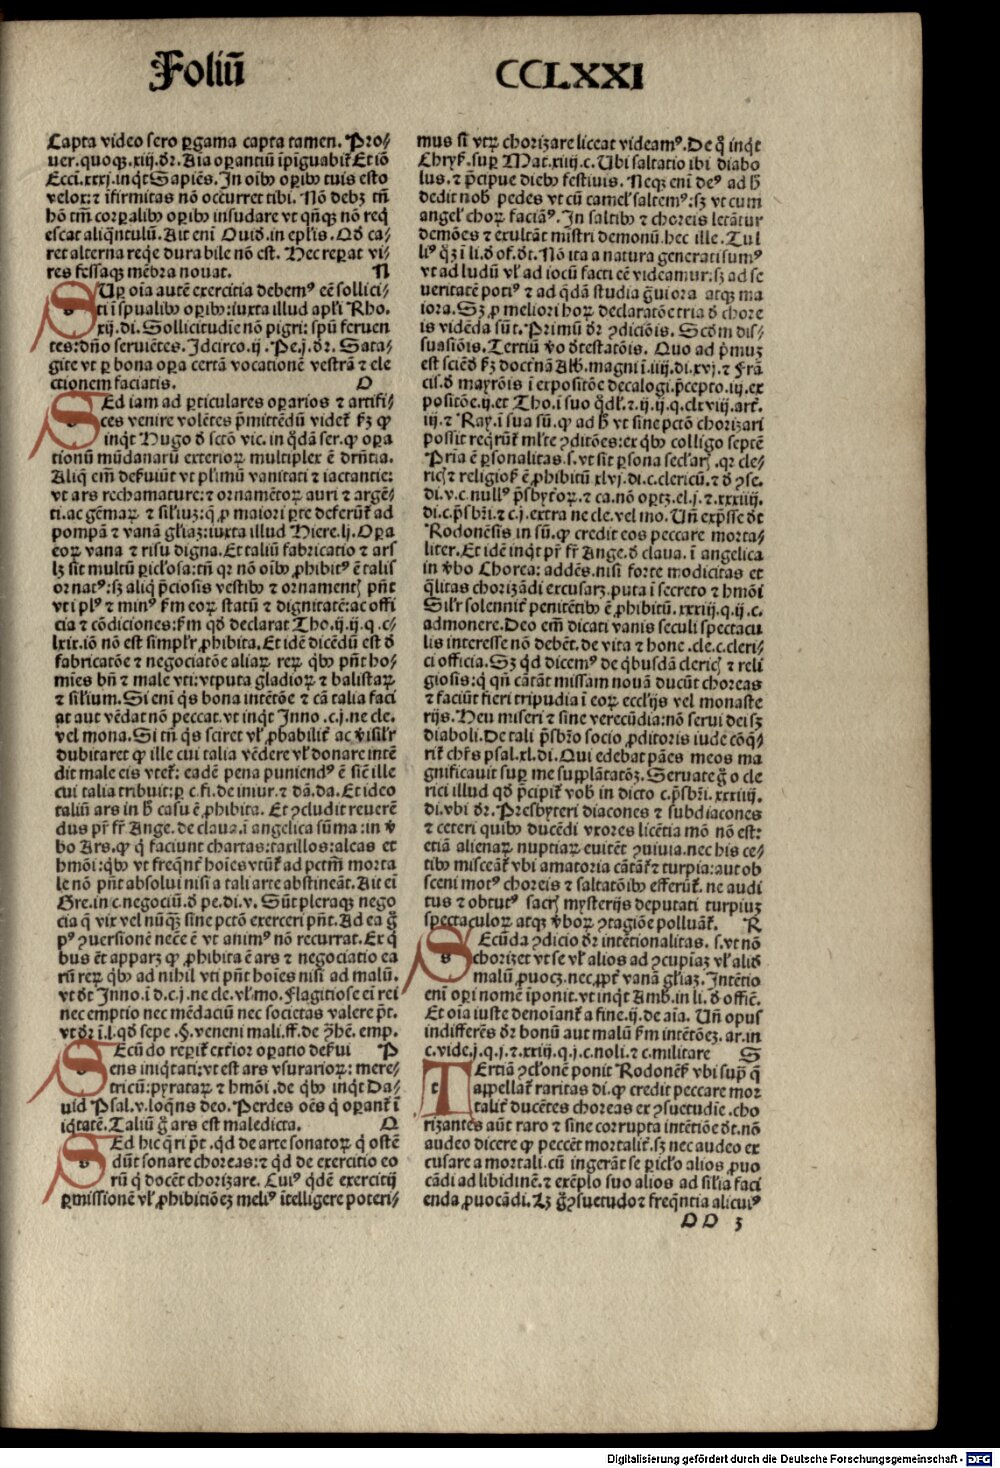 Foliū CCLXXI
Capta video sero ꝑgama capta tamen. Pro⸗
uer. quoqꝫ. xiij. dr̄. Aīa oꝑantiū īpīguabit̄ Et iō
Eccī. xxxj. inqͥt Sapiēs. In oībꝰ oꝑibꝰ tuis esto
velox: ⁊ īfirmitas nō occurret tibi. Nō debꝫ tn̄
hō tm̄ corꝑalibꝰ oꝑibꝰ insudare vt qn̄qꝫ nō req
escat aliqͣntulū. Ait eni Ouid. in epl̄is. Qd̄ ca⸗
ret alterna reqͥe dura bile nō est. Hec reꝑat vi⸗
res fessaqꝫ mēbra nouat. N
SUꝑ oīa autē exercitia debemꝰ eē sollici⸗
ti ī spūalibꝰ oꝑibꝰ: iuxta illud apl̄i Rho.
xij. di. Sollicitudīe nō pigri: spū feruen
tes: dn̄o seruiētes. Idcirco. ij. Pe. j. dr̄. Sata⸗
gite vt ꝑ bona oꝑa certā vocationē vestrā ⁊ ele
ctionem faciatis. O
SEd iam ad ꝑticulares oꝑarios ⁊ artifi⸗
ces venire volētes p̄mittēdū videt̄ ꝙ
inqͥt Hugo d̄ scto vic. in qͣdā ser. ꝙ oꝑa
tionū mūdanarū exterioꝝ multiplex ē drn̄tia.
Aliq̄ em̄ deẜuiūt vt plʼimū vanitati ⁊ iactantie:
vt ars rechamature: ⁊ ornamētoꝝ auri ⁊ argē⸗
ti. ac gēmaꝝ ⁊ siliuꝫ: q̄ ꝓ maiori ꝑte deferūt̄ ad
pompā ⁊ vanā gl̄iaꝫ: iuxta illud Hiere. lj. Oꝑa
eoꝝ vana ⁊ risu digna. Et taliū fabricatio ⁊ ars
lꝫ sit multū ꝑicl̄osa: tn̄ qꝛ nō oīno ꝓhibitꝰ ē talis
ornatꝰ: sꝫ aliqͣ p̄ciosis vestibꝰ ⁊ ornamentꝭ pn̄t
vti plꝰ ⁊ minꝰ ẜm eoꝝ statū ⁊ dignitatē: ac offi
cia ⁊ cōdiciones: ẜm qd̄ declarat Tho. ij. ij. q. c⸗
lxix. iō nō est simplr̄ ꝓhibita. Et idē dicēdū est d̄
fabricatōe ⁊ negociatōe aliaꝝ reꝝ qͥbꝰ pn̄t ho⸗
mīes bn̄ ⁊ male vti: vtputa gladioꝝ ⁊ balistaꝝ
⁊ silium. Si eni qͥs bona intētōe ⁊ cā talia faci
at aut vēdat nō peccat. vt inqͥt Inno. c. j. ne cle.
vel mona. Si tn̄ qͥs sciret vl̄ ꝓbabilit̄ ac v̓isilr̄
dubitaret ꝙ ille cui talia vēdere vl̄ donare intē
dit male eis vtet̄: eadē pena puniendꝰ ē siē ille
cui talia tribuit: ꝑ c. fi. de iniur. ⁊ dā. da. Et ideo
taliū ars in h̄ casu ē ꝓhibita. Et ꝯcludit reuerē
dus pr̄ fr̄ Ange. de claua. ī angelica sūma: in v̓
bo Ars. ꝙ qͥ faciunt chartas: taxillos: aleas et
hmōi: qͥbꝰ vt freqn̄t̄ hoīes vtūt̄ ad pctm̄ morta
le nō pn̄t absolui nisi a tali arte abstineāt. Ait ei
Gre. in c. negociū. d̄ pe. di. v. Sūt pleraqꝫ nego
cia q̄ vix vel nūqͣꝫ sine pctō exerceri pn̄t. Ad ea g̊
pꝰ ꝯuersionē necē ē vt animꝰ nō recurrat. Ex qͥ
bus ēt apparꝫ ꝙ ꝓhibita ē ars ⁊ negociatio ea
rū reꝝ qͥbꝰ ad nihil vti pn̄t hoīes nisi ad malū.
vt dt Inno. ī d. c. j. ne cle. vl̄ mo. Flagitiose ei rei
nec emptio nec mēdaciū nec societas valere pt̄.
vt dr̄ ī. l. qd̄ sepe. §. veneni mali. ff. de ꝯhē. emp.
SEcūdo reꝑit̄ ext̓ior oꝑatio deẜui P
ens iniqͥtati: vt est ars vsurarioꝝ: mere⸗
tricū: pyrataꝝ ⁊ hmōi. de qͥbꝰ inqͥt Da⸗
uid Psal. v. loqn̄s deo. Perdes oēs qͥ oꝑant̄ ī
iqͥtatē. Taliū g̊ ars est maledicta. Q
SEd hic qͥri pt̄. qͥd de arte sonatoꝝ qͥ ostē
dūt sonare choreas: ⁊ qͥd de exercitio eo
rū qͥ docēt chorizare. Cuiꝰ qͥdē exercitij
ꝑmissionē vl̄ ꝓhibitiōeꝫ meliꝰ ītelligere poteri⸗
mus si vtꝝ chorizare liceat videamꝰ. De qͦ inqͥt
Chryẜ. suꝑ Mat. xiiij. c. Ubi saltatio ibi diabo
lus. ⁊ p̄cipue diebꝰ festiuis. Neqꝫ eni deꝰ ad h̄
dedit nob̄ pedes vt cū camel̓ saltemꝰ: sꝫ vt cum
angel̓ choꝝ faciāꝰ. In saltibꝰ ⁊ choreis letātur
demōes ⁊ exultāt mīstri demonū. hec ille. Tul
liꝰ qͥꝫ ī li. d̄ of. dt. Nō ita a natura generati sumꝰ
vt ad ludū vl̄ ad iocū facti eē videamur: sꝫ ad se
ueritatē potiꝰ ⁊ ad qͣdā studia gͣuiora atqꝫ ma
iora. Sꝫ ꝓ meliori hoꝝ declaratōe tria d̄ chore
is vidēda sūt. Primū dr̄ ꝯdiciōis. Scd̄m dis⸗
suasiōis. Tertiū v̓o d̄testatōis. Quo ad p̄muꝫ
est sciēd̄ ẜꝫ doctʼinā Alb̄. magni ī. iiij. di. xvj. ⁊ Frā
cis. d̄ mayrōis ī expositōe decalogi. p̄cepto. iij. ex
positōe. ij. et Tho. ī suo qͦdl̄. ⁊. ij. ij. q. clxviij. art̄.
iij. ⁊ Ray. ī sua sū. ꝙ ad h̄ vt sine pctō chorizari
possit reqͥrūt̄ ml̄te ꝯditōes: ex qͥbꝰ colligo septē
Pria ē ꝑsonalitas. s. vt sit ꝑsona sec̄larꝭ. qꝛ cle⸗
ricꝭ ⁊ religiosꝭ ē ꝓhibitū xlvj. di. c. clericū. ⁊ d̄ ꝯse.
di. v. c. nullꝰ p̄sbyt̓oꝝ. ⁊ ca. nō oportꝫ. el. j. ⁊. xxxiiij.
di. c. p̄sbr̄i. ⁊ c. j. extra ne cle. vel mo. Un̄ exp̄sse dt
Rodonēsis in sū. ꝙ credit eos peccare morta⸗
liter. Et idē inqͥt pr̄ fr̄ Ange. d̄ claua. ī angelica
in v̓bo Chorea: addēs. nisi forte modicitas et
qͣlitas chorizādi excusarꝫ. puta ī secreto ⁊ hmōi
Silr̄ solennit̄ penitētibꝰ ē ꝓhibitū. xxxiij. q. ij. c.
admonere. Deo em̄ dicati vanis seculi spectacu
lis interesse nō debēt. de vita ⁊ hone. cle. c. cleri⸗
ci officia. Sꝫ qͥd dicemꝰ de qͥbusdā clericꝭ ⁊ reli
giosis: qͥ qn̄ cātāt missam nouā ducūt choreas
⁊ faciūt fieri tripudia ī eoꝝ eccl̄ijs vel monaste
rijs. Heu miseri ⁊ sine verecūdia: nō serui dei sꝫ
diaboli. De tali p̄sbr̄o socio ꝓditoris iude cōq̄⸗
rit̄ chr̄s psal. xl. di. Qui edebat pāes meos ma
gnificauit suꝑ me supplātatōꝫ. Seruate g̊ o cle
rici illud qd̄ p̄cipit̄ vob̄ in dicto c. p̄sbr̄i. xxxiiij.
di. vbi dr̄. Presbyteri diacones ⁊ subdiacones
⁊ ceteri quibꝰ ducēdi vxores licētia mō nō est:
etiā alienaꝝ nuptiaꝝ euitēt ꝯuiuia. nec his ce⸗
tibꝰ misceāt̄ vbi amatoria cātāt̄ ⁊ turpia: aut ob
sceni motꝰ choreis ⁊ saltatōibꝰ efferūt̄. ne audi
tus ⁊ obtutꝰ sacrꝭ mysterijs deputati turpiuꝫ
spectaculoꝝ atqꝫ v̓boꝝ ꝯtagiōe polluāt̄. R
SEcūda ꝯdicio dr̄ intētionalitas. s. vt nō
chorizet vt se vl̄ alios ad ꝯcupīaꝫ vl̄ aliḋ
malū ꝓuocꝫ. nec. ꝓpt̓ vanā gl̄iaꝫ. Intētio
eni oꝑi nomē īponit. vt inqͥt Amb̄. in li. d̄ offic̄.
Et oīa iuste denoīant̄ a fine. ij. de aīa. Un̄ opus
indifferēs dr̄ bonū aut malū ẜm intētōeꝫ. ar. in
c. vide. j. q. j. ⁊. xxiij. q. j. c. noli. ⁊ c. militare S
TErtiā ꝯcl̄onē ponit Rodonēẜ vbi supͣ q̄
appellat̄ raritas di. ꝙ credit peccare mor
talit̓ ducētes choreas ex ꝯsuetudīe. cho
rizantes aūt raro ⁊ sine corrupta intētiōe dt. nō
audeo dicere ꝙ peccēt mortalit̓. sꝫ nec audeo ex
cusare a mortali. cū ingerāt se ꝑicl̄o alios ꝓuo
cādi ad libidinē. ⁊ exēplo suo alios ad silia faci
enda ꝓuocādi. Lꝫ g̊ ꝯsuetudo ⁊ freqn̄tia alicuiꝰ
OO 3
Digitalisierung gefördert durch die Deutsche Forschungsgemeinschaft - DFG